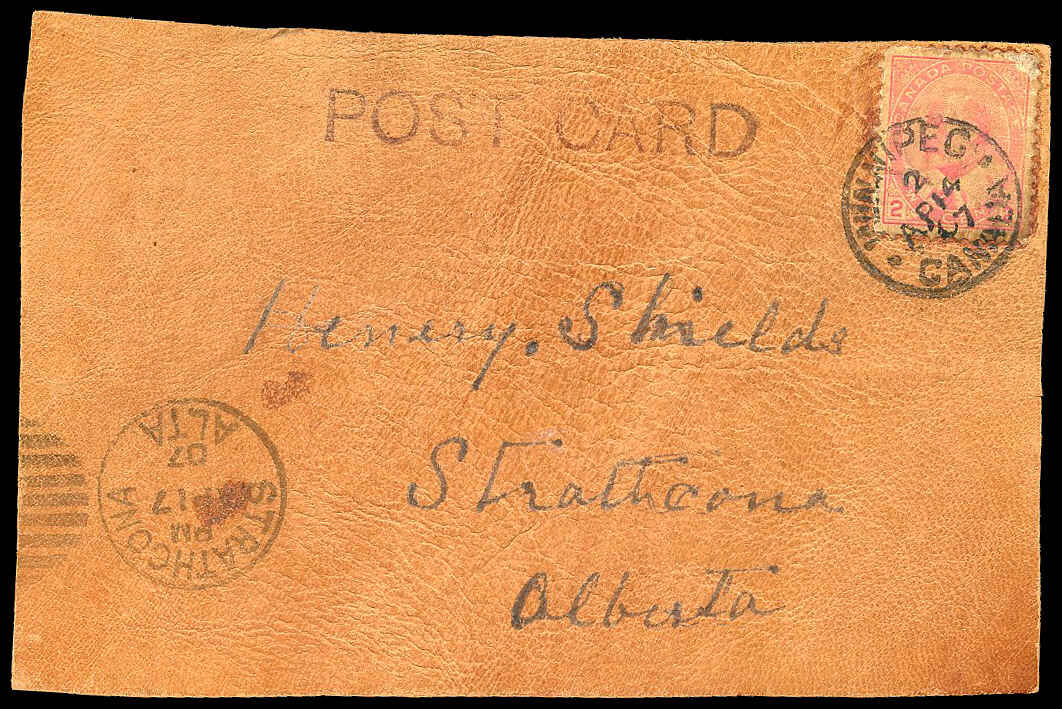 POST CARD
CANADA POSTAGE
2
WINNIPEG
2
AP 14
07
CANADA
Henery. Shields
Strathcona
Alberta
STRATHCONA
PM
17
07
ALTA